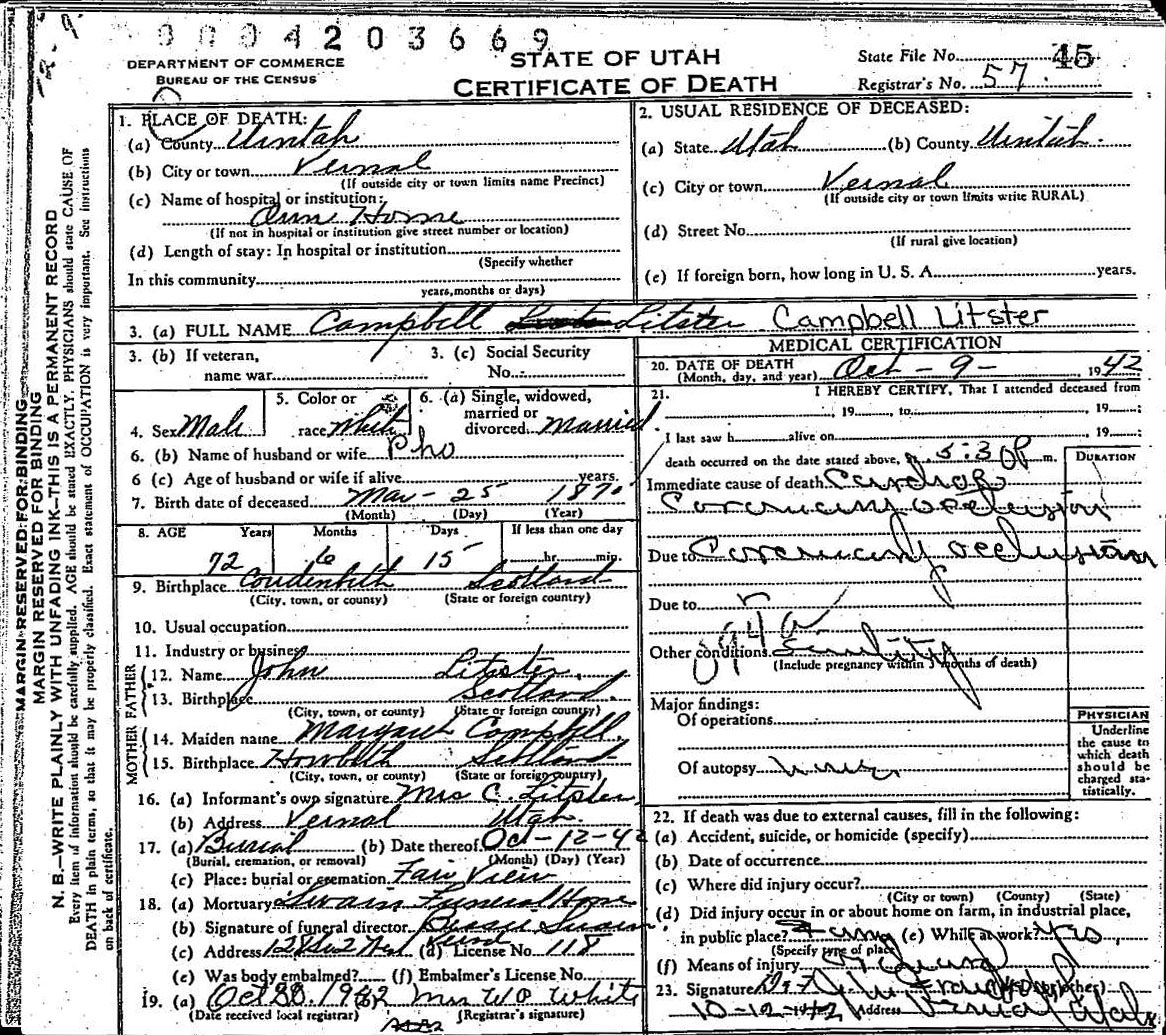 0004203669
DEPARTMENT OF COMMERCE
BUREAU OF THE CENSUS
STATE OF UTAH
CERTIFICATE OF DEATH
State File No. 45
Registrar's No. 57
MARGIN RESERVED FOR BINDING
MARGIN RESERVED FOR BINDING
N. B.—WRITE PLAINLY WITH UNFADING INK—THIS IS A PERMANENT RECORD
Every item of information should be carefully supplied. AGE should be stated EXACTLY. PHYSICIANS should state CAUSE OF
DEATH in plain terms, so that it may be properly classified. Exact statement of OCCUPATION is very important. See instructions
on back of certificate.
1. PLACE OF DEATH:
(a) County Uintah
(b) City or town Vernal
(If outside city or town limits name Precinct)
(c) Name of hospital or institution:
Own Home
(If not in hospital or institution give street number or location)
(d) Length of stay: In hospital or institution
(Specify whether
In this community
years, months or days)
2. USUAL RESIDENCE OF DECEASED:
(a) State Utah (b) County Uintah
(c) City or town Vernal
(If outside city or town limits write RURAL)
(d) Street No.
(If rural give location)
(e) If foreign born, how long in U. S. A. years.
3. (a) FULL NAME Campbell Litster Campbell Litster
3. (b) If veteran,
name war
3. (c) Social Security
No.
4. Sex Male
5. Color or
race White
6. (a) Single, widowed,
married or
divorced Married
6. (b) Name of husband or wife
6 (c) Age of husband or wife if alive years.
7. Birth date of deceased Mar - 25 1870
(Month) (Day) (Year)
8. AGE Years Months Days If less than one day
72 6 15 hr. min.
9. Birthplace Scotland
(City, town, or county) (State or foreign country)
10. Usual occupation
11. Industry or business
FATHER
12. Name John Litster
13. Birthplace Scotland
(City, town, or county) (State or foreign country)
MOTHER
14. Maiden name Margaret Campbell
15. Birthplace Scotland
(City, town, or county) (State or foreign country)
16. (a) Informant's own signature Mrs C. Litster
(b) Address Vernal Utah
17. (a) Burial (b) Date thereof Oct-12-42
(Burial, cremation, or removal) (Month) (Day) (Year)
(c) Place: burial or cremation Fair View
18. (a) Mortuary Swain Funeral Home
(b) Signature of funeral director Swain
(c) Address (d) License No 118
(e) Was body embalmed? (f) Embalmer's License No.
19. (a) Oct 1942 Mrs W P White
(Date received local registrar) (Registrar's signature)
MEDICAL CERTIFICATION
20. DATE OF DEATH Oct - 9 - 1942
(Month, day, and year)
21. I HEREBY CERTIFY, That I attended deceased from
, 19 , to , 19 ;
I last saw h alive on , 19 ;
death occurred on the date stated above, 5:30 P m.
DURATION
Immediate cause of death Cardiac
Coronary occlusion
Due to Coronary occlusion
Due to
94 a
Other conditions Senility
(Include pregnancy within 3 months of death)
Major findings:
Of operations
Of autopsy none
PHYSICIAN
Underline
the cause to
which death
should be
charged sta-
tistically.
22. If death was due to external causes, fill in the following:
(a) Accident, suicide, or homicide (specify)
(b) Date of occurrence
(c) Where did injury occur?
(City or town) (County) (State)
(d) Did injury occur in or about home on farm, in industrial place,
in public place? Farm (e) While at work? Yes
(Specify type of place)
(f) Means of injury
23. Signature
10-12-1942 Address Vernal Utah